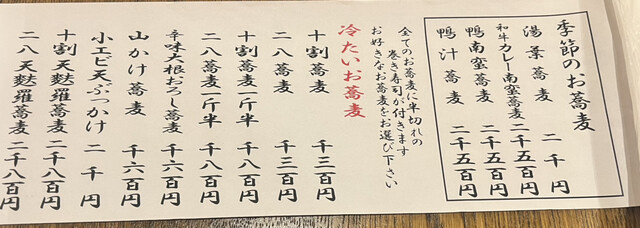 季節のお蕎麦
湯葉蕎麦 二千円
和牛カレー南蛮蕎麦 二千五百円
鴨南蛮蕎麦 二千五百円
鴨汁蕎麦 二千五百円
全てのお蕎麦に半切れの
巻き寿司が付きます
お好きなお蕎麦をお選び下さい
冷たいお蕎麦
十割蕎麦 千三百円
二八蕎麦 千三百円
十割蕎麦一斤半 千八百円
二八蕎麦一斤半 千八百円
辛味大根おろし蕎麦 千六百円
山かけ蕎麦 千六百円
小エビ天ぶっかけ 二千円
十割天麩羅蕎麦 二千八百円
二八天麩羅蕎麦 二千八百円